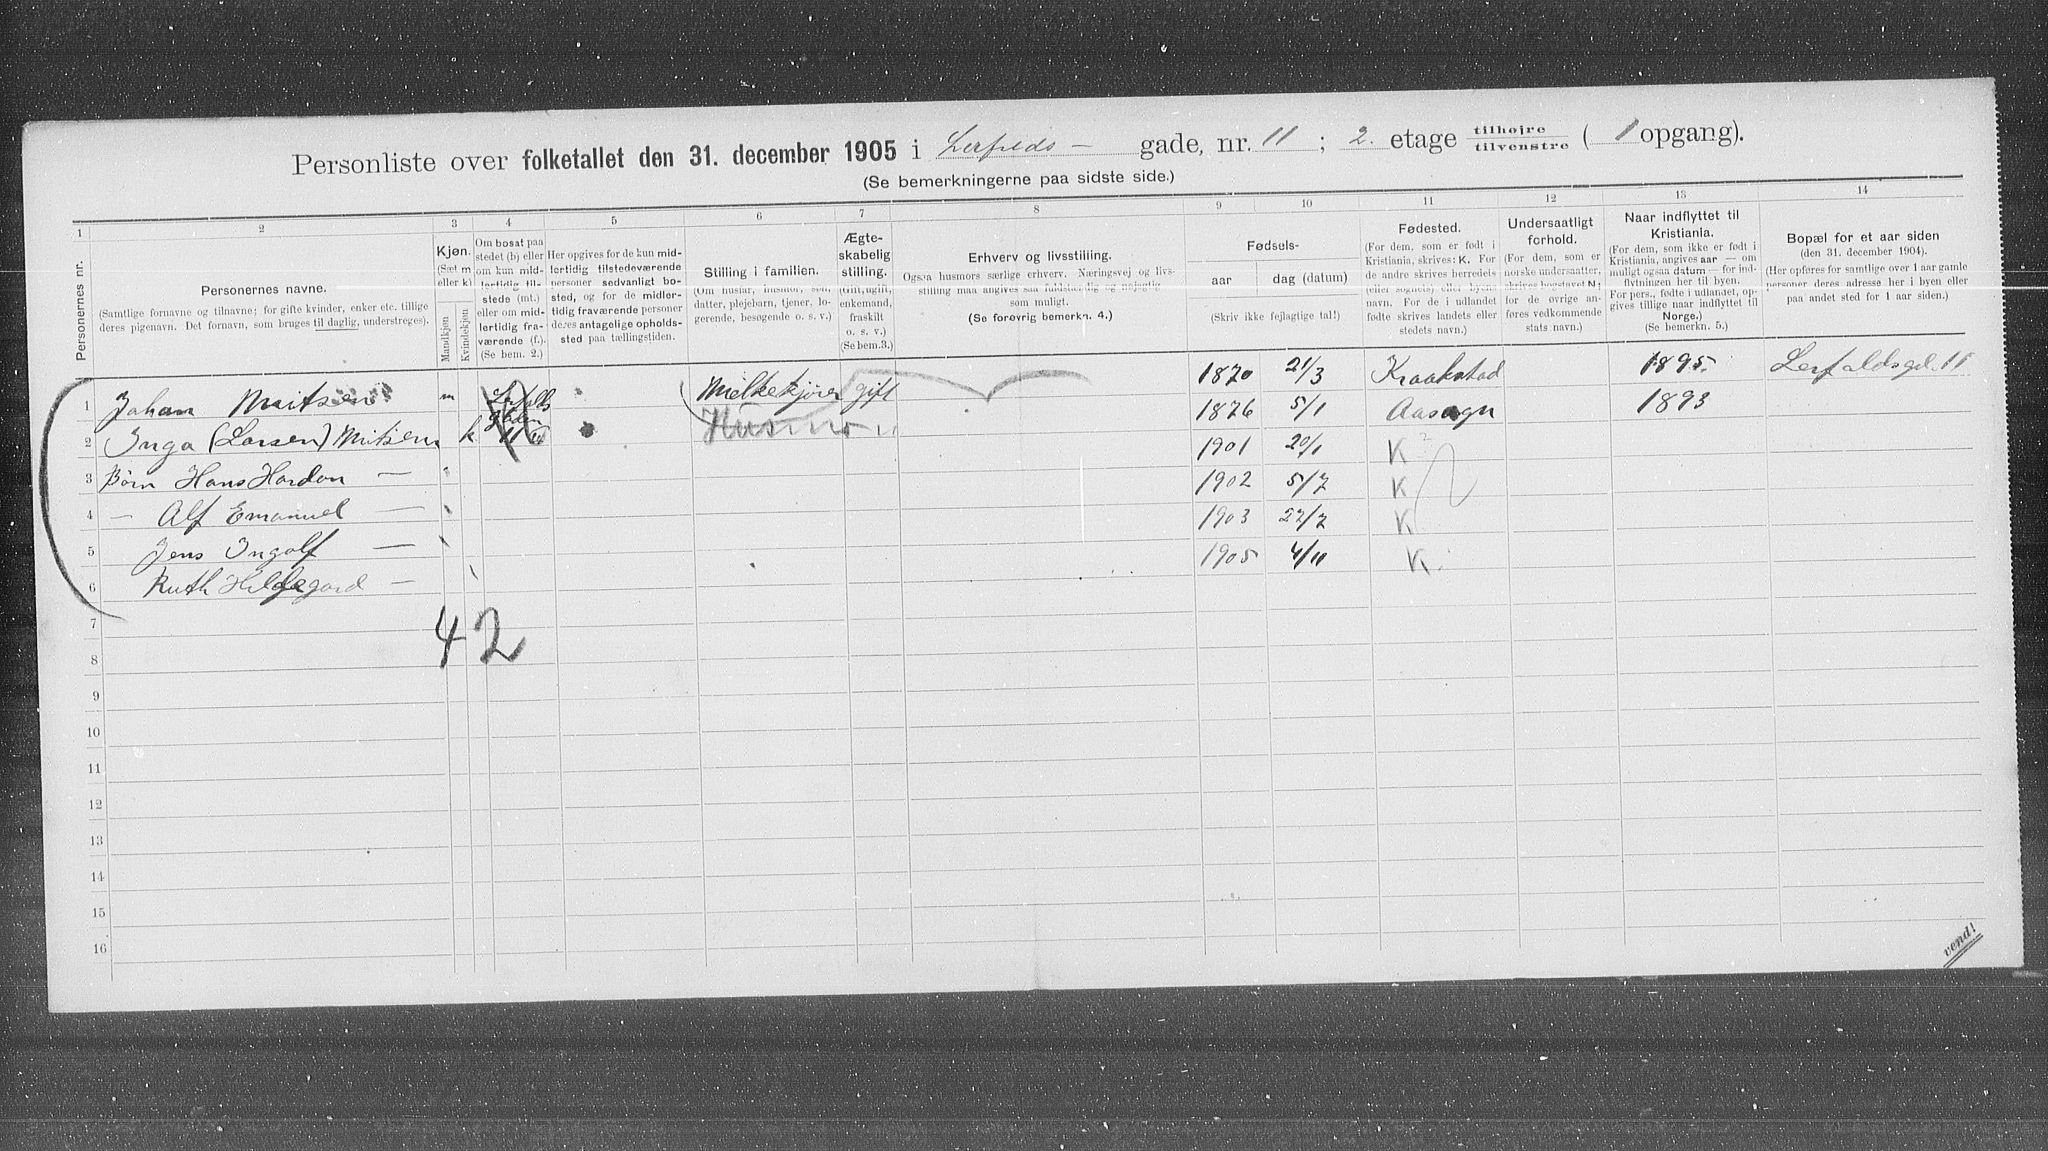 Personliste over folketallet den 31. december 1905 i Lerfalds- gade, nr. 11; 2. etage tilhøjre tilvenstre (1 opgang).
(Se bemerkningerne paa sidste side.)
1 2 3 4 5 6 7 8 9 10 11 12 13 14
Personernes nr.
Personernes navne.
(Samtlige fornavne og tilnavne; for gifte kvinder, enker etc. tillige
deres pigenavn. Det fornavn, som bruges til daglig, understreges).
Kjøn.
(Sæt m
eller k)
Mandkjøn
Kvindekjøn
Om bosat paa
stedet (b) eller
om kun mid-
lertidig til-
stede (mt.)
eller om mid-
lertidig fra-
værende (f.).
(Se bem. 2.)
Her opgives for de kun mid-
lertidig tilstedeværende
personer sedvanligt bo-
sted, og for de midler-
tidig fraværende personer
deres antagelige opholds-
sted paa tællingstiden.
Stilling i familien.
(Om husfar, husmor, søn,
datter, plejebarn, tjener, lo-
gerende, besøgende o. s. v.)
Ægte-
skabelig
stilling.
(Gift, ugift,
enkemand,
fraskilt
o. s. v.)
(Se bem.3.)
Erhverv og livsstilling.
Ogsaa husmors særlige erhverv. Næringsvej og livs-
stilling maa angives saa fuldstændig og nøjagtig
som muligt.
(Se forøvrig bemerkn. 4.)
Fødsels-
aar
dag (datum)
(Skriv ikke fejlagtige tal!)
Fødested.
(For dem, som er født i
Kristiania, skrives: K. For
de andre skrives herredets
(eller sognets) eller byens
navn. For de i udlandet
fødte skrives landets eller
stedets navn.)
Undersaatligt
forhold.
(For dem, som er
norske undersaatter,
skrives bogstavet N;
for de øvrige an-
føres vedkommende
stats navn.)
Naar indflyttet til
Kristiania.
(For dem, som ikke er født i
Kristiania, angives aar — om
muligt ogsaa datum — for ind-
flytningen her til byen.
For pers., fødte i udlandet, op-
gives tillige naar indflyttet til
Norge.)
(Se bemerkn. 5.)
Bopæl for et aar siden
(den 31. december 1904).
(Her opføres for samtlige over 1 aar gamle
personer deres adresse her i byen eller
paa andet sted for 1 aar siden.)
1 Johan m Lerfalds Melkekjører gift 1870 21/3 Kraakstad 1895 Lerfaldsgd. 11
2 Inga (Larsen) k gaden 11 Husmor " 1876 5/1 1893
3 Børn Hans — 1901 20/1 K
4 — Alf Emanuel — 1902 5/7 K
5 Jens Ingolf — 1903 27/7 K
6 Ruth Hildegard — 1905 4/11 K
42
7
8
9
10
11
12
13
14
15
16
vend!